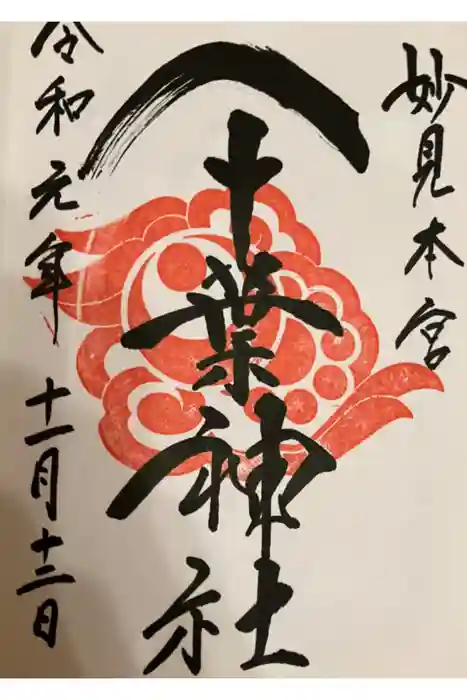 妙見本宮
千葉神社
令和元年十一月十三日